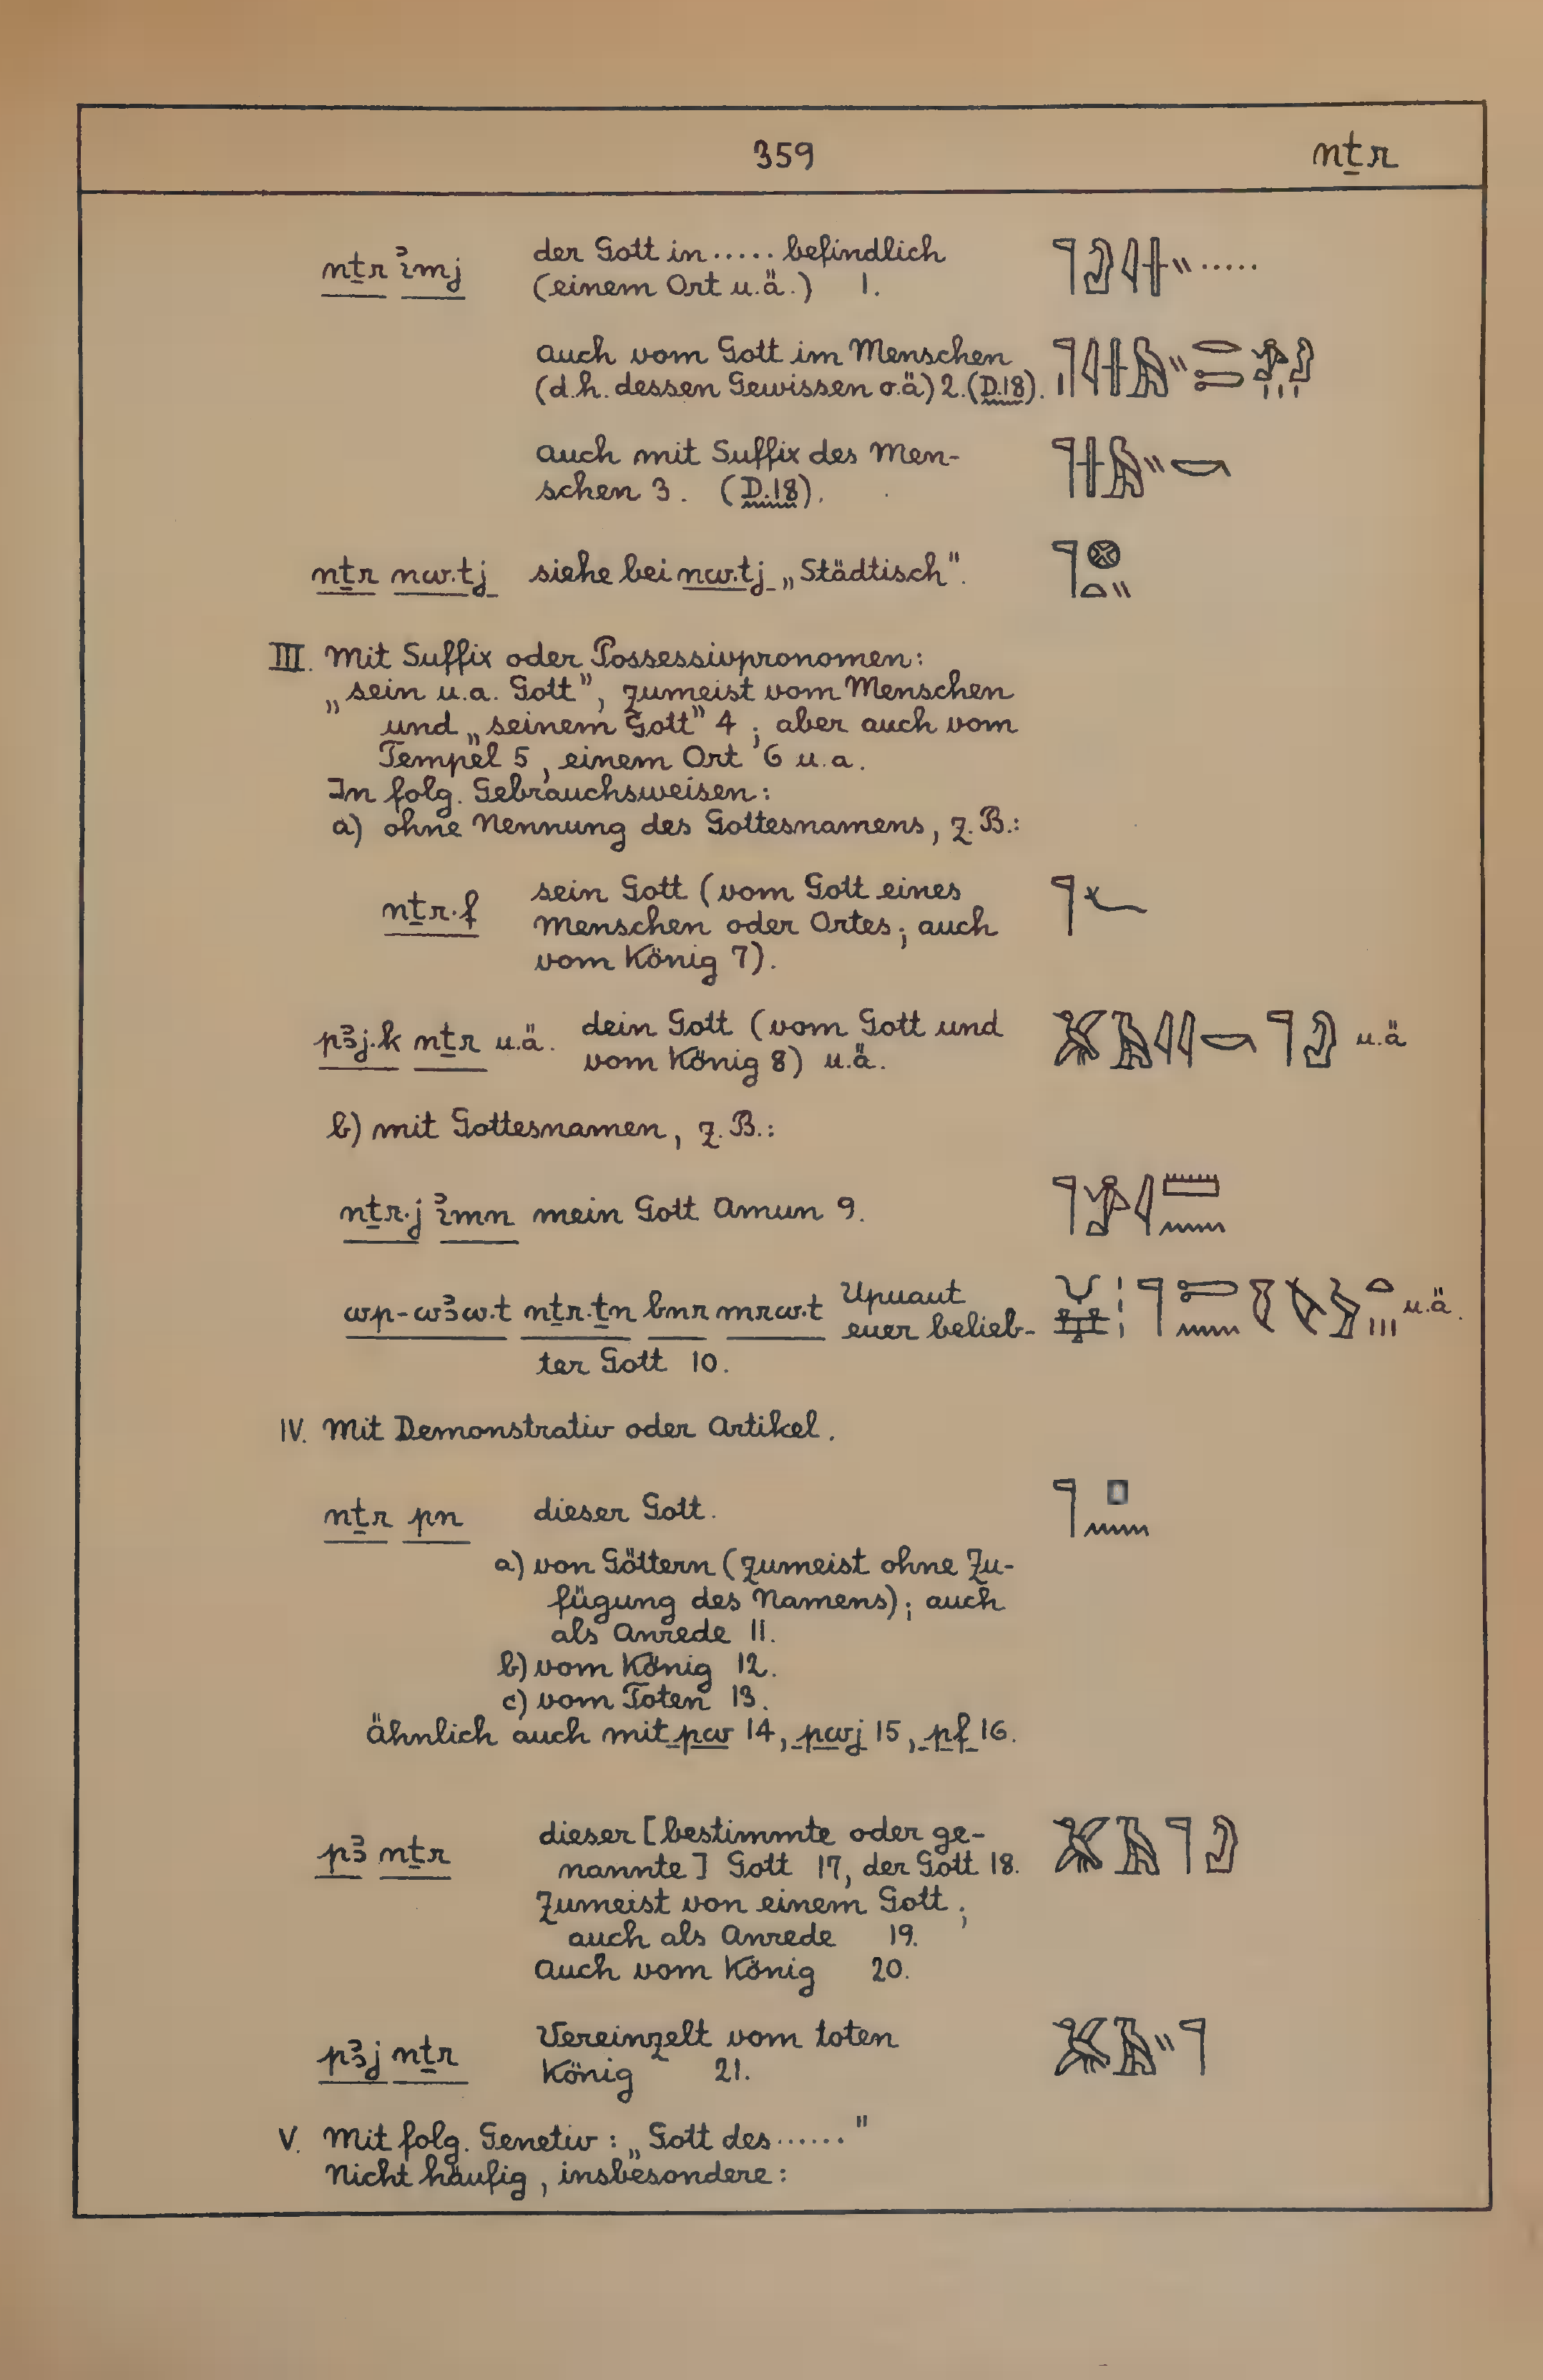 359 nṯr
nṯr ỉmj der Gott in ..... befindlich
(einem Ort u.ä.) 1.
auch vom Gott im Menschen
(d.h. dessen Gewissen o.ä) 2. (D.18).
auch mit Suffix des Men-
schen 3. (D.18).
nṯr nw.tj siehe bei nw.tj „Städtisch".
III. Mit Suffix oder Possessivpronomen:
„sein u.a. Gott", zumeist vom Menschen
und „seinem Gott" 4 ; aber auch vom
Tempel 5, einem Ort 6 u.a.
In folg. Gebrauchsweisen:
a) ohne Nennung des Gottesnamens, z.B.:
nṯr.f sein Gott (vom Gott eines
Menschen oder Ortes; auch
vom König 7).
pꜣj.k nṯr u.ä. dein Gott (vom Gott und u.ä
vom König 8) u.ä.
b) mit Gottesnamen, z.B.:
nṯr.j ỉmn mein Gott Amun 9.
wp-wꜣw.t nṯr.ṯn bnr mrw.t Upuaut u.ä.
euer belieb-
ter Gott 10.
IV. Mit Demonstrativ oder Artikel.
nṯr pn dieser Gott.
a) von Göttern (zumeist ohne Zu-
fügung des Namens); auch
als Anrede 11.
b) vom König 12.
c) vom Toten 13.
ähnlich auch mit pw 14, pwj 15, pf 16.
pꜣ nṯr dieser [bestimmte oder ge-
nannte] Gott 17, der Gott 18.
Zumeist von einem Gott;
auch als Anrede 19.
Auch vom König 20.
pꜣj nṯr Vereinzelt vom toten
König 21.
V. Mit folg. Genetiv: „Gott des ......"
Nicht häufig, insbesondere: